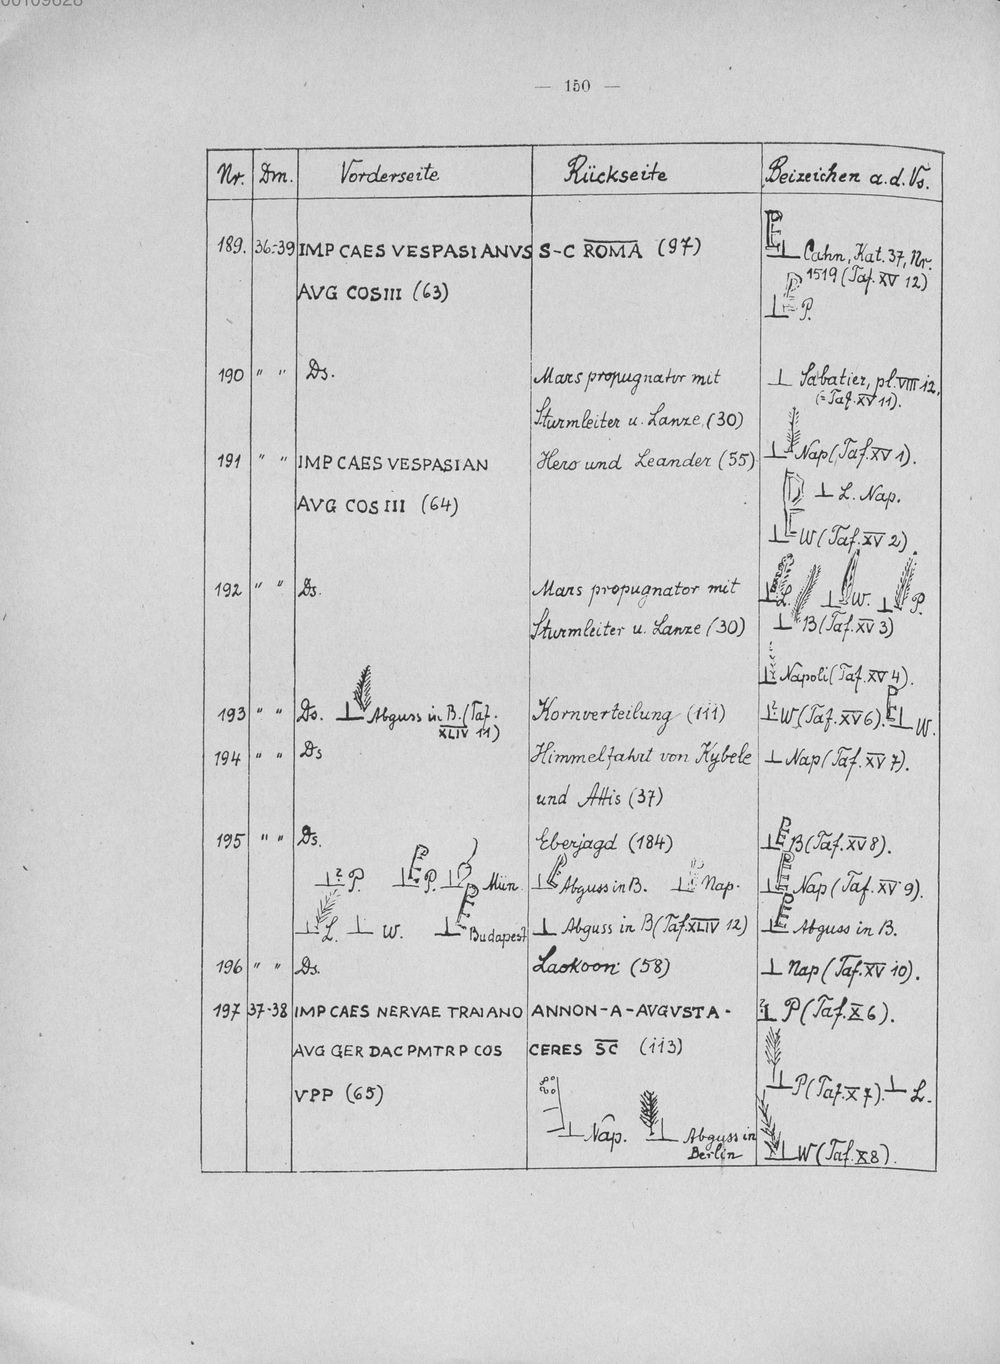 00109628
— 150 —
Nr. Dm. Vorderseite Rückseite Beizeichen a.d.Vs.
189. 36-39 IMP CAES VESPASIANVS S-C ROMA (97) Cahn, Kat. 37, Nr.
1519 (Taf. XV 12)
AVG COSIII (63) P.
190 " " Ds. Mars propugnator mit Sabatier, pl. VIII 12,
(= Taf. XV 11).
Sturmleiter u. Lanze (30)
191 " " IMP CAES VESPASIAN Hero und Leander (55) Nap (Taf. XV 1).
AVG COS III (64) L. Nap.
W (Taf. XV 2)
192 " " Ds. Mars propugnator mit L. W. P.
Sturmleiter u. Lanze (30) B (Taf. XV 3)
Napoli (Taf. XV 4).
193 " " Ds. Abguss in B. (Taf. XLIV 11) Kornverteilung (111) W (Taf. XV 6). W.
194 " " Ds Himmelfahrt von Kybele Nap (Taf. XV 7).
und Attis (37)
195 " " Ds. Eberjagd (184) B (Taf. XV 8).
? P. P. Mün. Abguss in B. Nap. Nap (Taf. XV 9).
L. W. Budapest Abguss in B (Taf. XLIV 12) Abguss in B.
196 " " Ds. Laokoon (58) Nap (Taf. XV 10).
197 37-38 IMP CAES NERVAE TRAIANO ANNON-A-AVGVSTA- P (Taf. X 6).
AVG GER DAC PMTRP COS CERES SC (113)
VPP (65) P (Taf. X 7). L.
Nap. Abguss in
Berlin W (Taf. X 8).